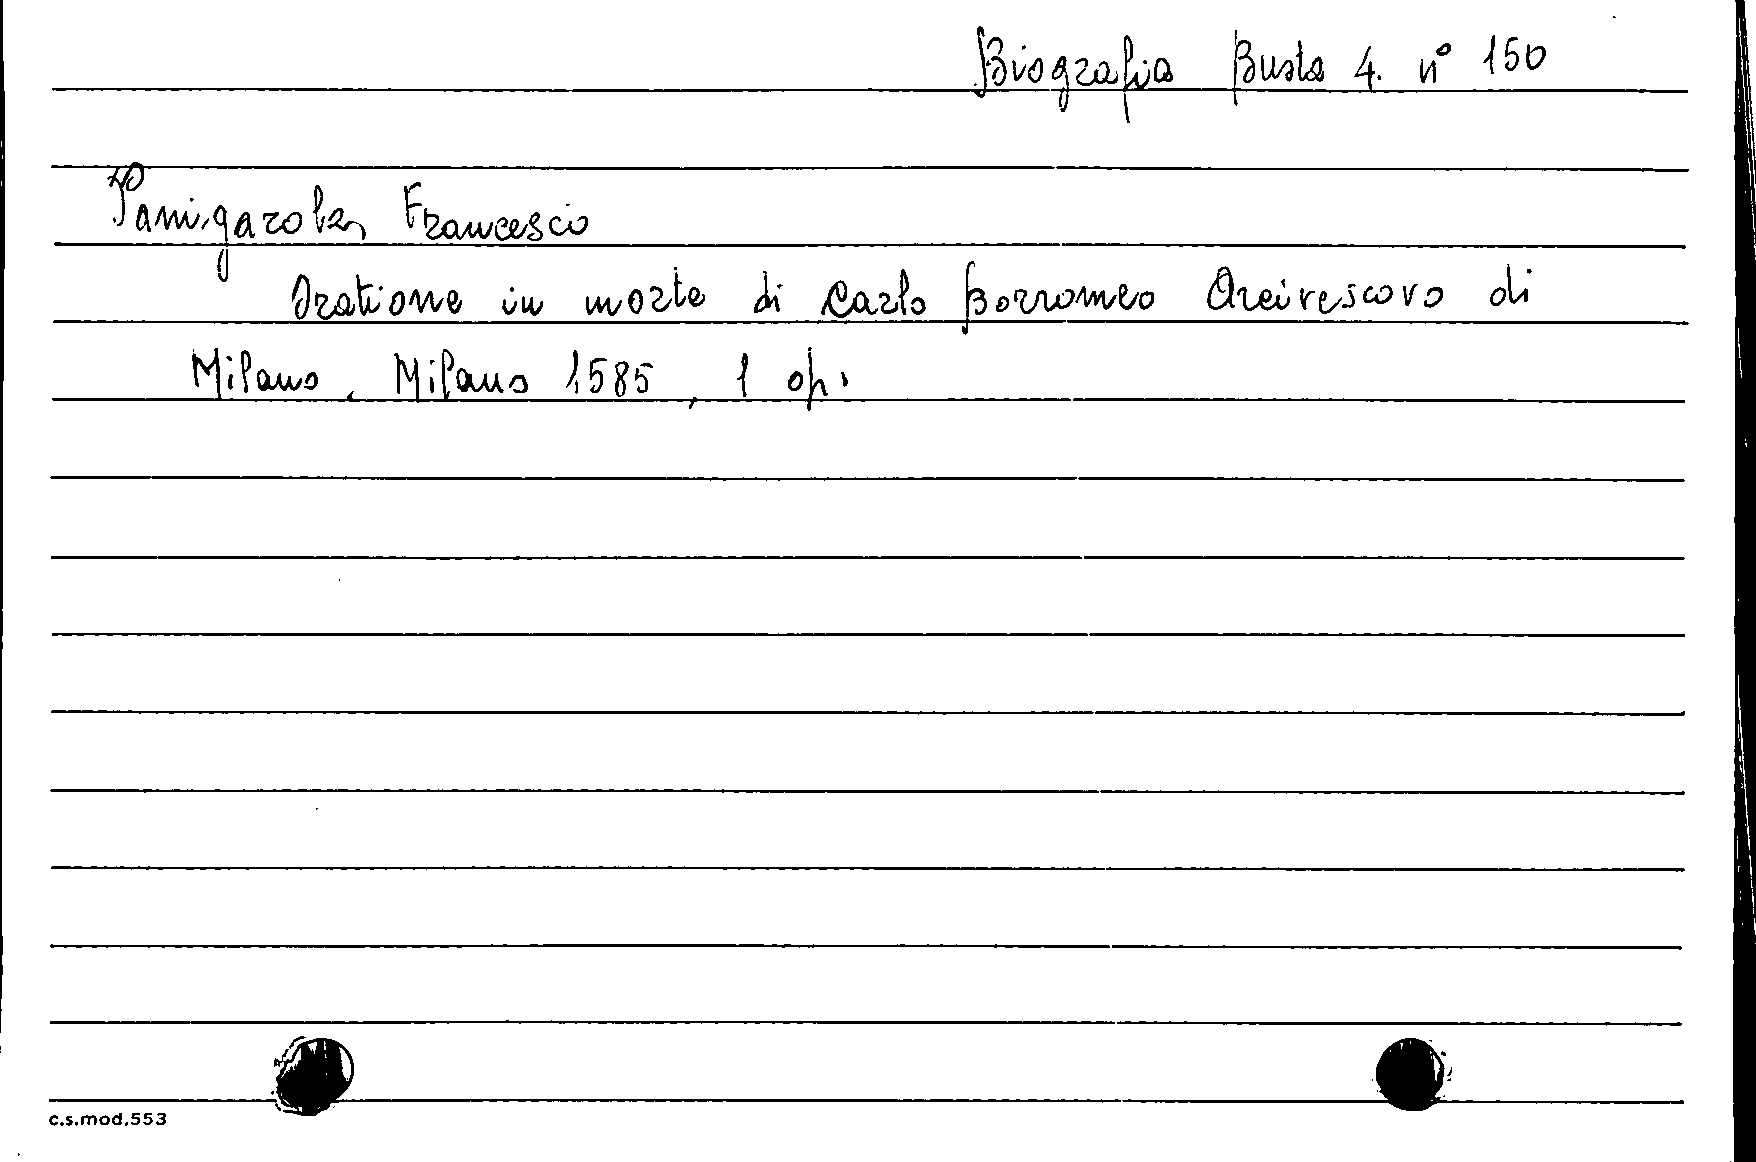 Biografia Busta 4. n° 150
Panigarola, Francesco
Oratione in morte di Carlo Borromeo Arcivescovo di
Milano. Milano 1585, 1 op.
c.s.mod.553